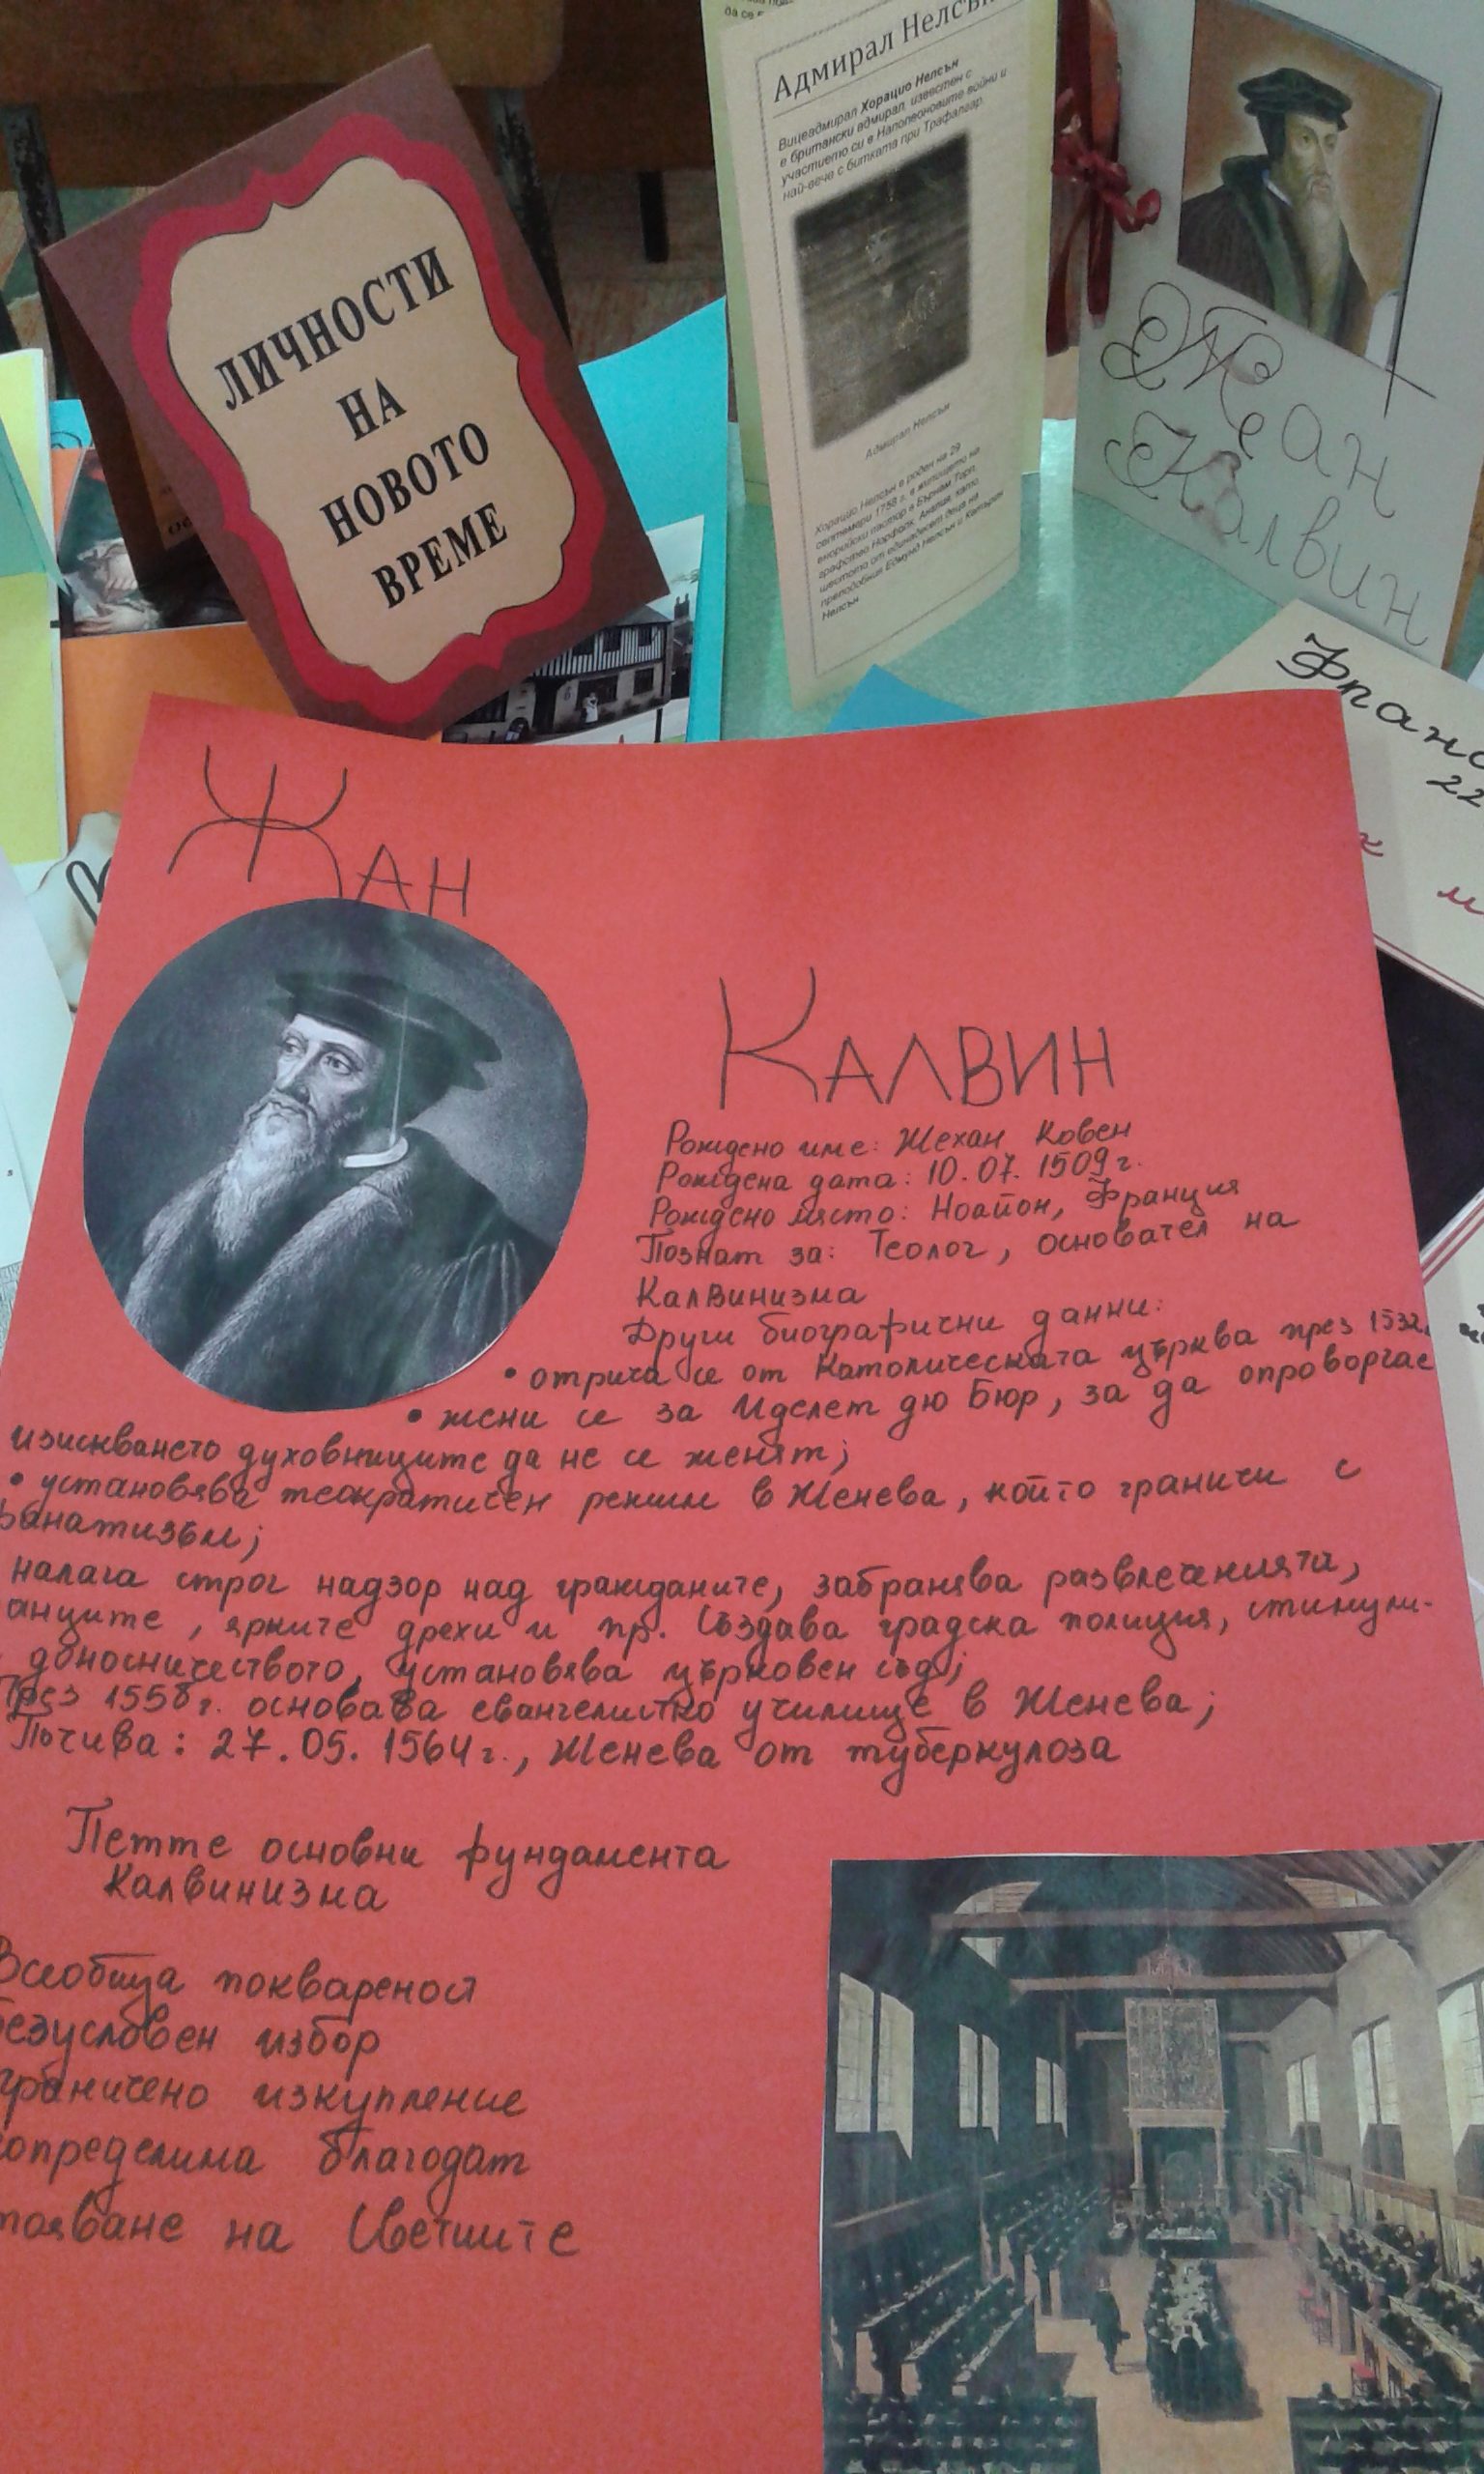 да се
Адмирал Нелсън
Вицеадмирал Хорацио Нелсън
е британски адмирал, известен с
участието си в Наполеоновите войни и
най-вече с битката при Трафалгар.
Адмирал Нелсън
Хорацио Нелсън е роден на 29
септември 1758 г. в жилището на
енорийски пастор в Бърнам Торп,
графство Норфолк, Англия, като
шестото от единадесет деца на
преподобния Едмунд Нелсън и Катърин
Нелсън
ЛИЧНОСТИ
НА
НОВОТО
ВРЕМЕ
Жан
Калвин
22
ЖАН
КАЛВИН
Рождено име: Жехан Ковен
Рождена дата: 10.07.1509г.
Рождено място: Ноайон, Франция
Познат за: Теолог, основател на
Калвинизма
Други биографични данни:
• отрича се от Католическата църква през 1532г.
• жени се за Иделет дю Бюр, за да опроворгае
изискването духовниците да не се женят;
• установява теократичен режим в Женева, който граничи с
фанатизъм;
налага строг надзор над гражданите, забранява развлеченията,
анците, ярките дрехи и пр. Създава градска полиция, стимули-
доносничеството, установява църковен съд;
През 1558г. основава евангелистко училище в Женева;
Почива: 27.05.1564г., Женева от туберкулоза
Петте основни фундамента
Калвинизма
Всеобща поквареност
безусловен избор
граничено изкупление
определима благодат
тояване на Светиите